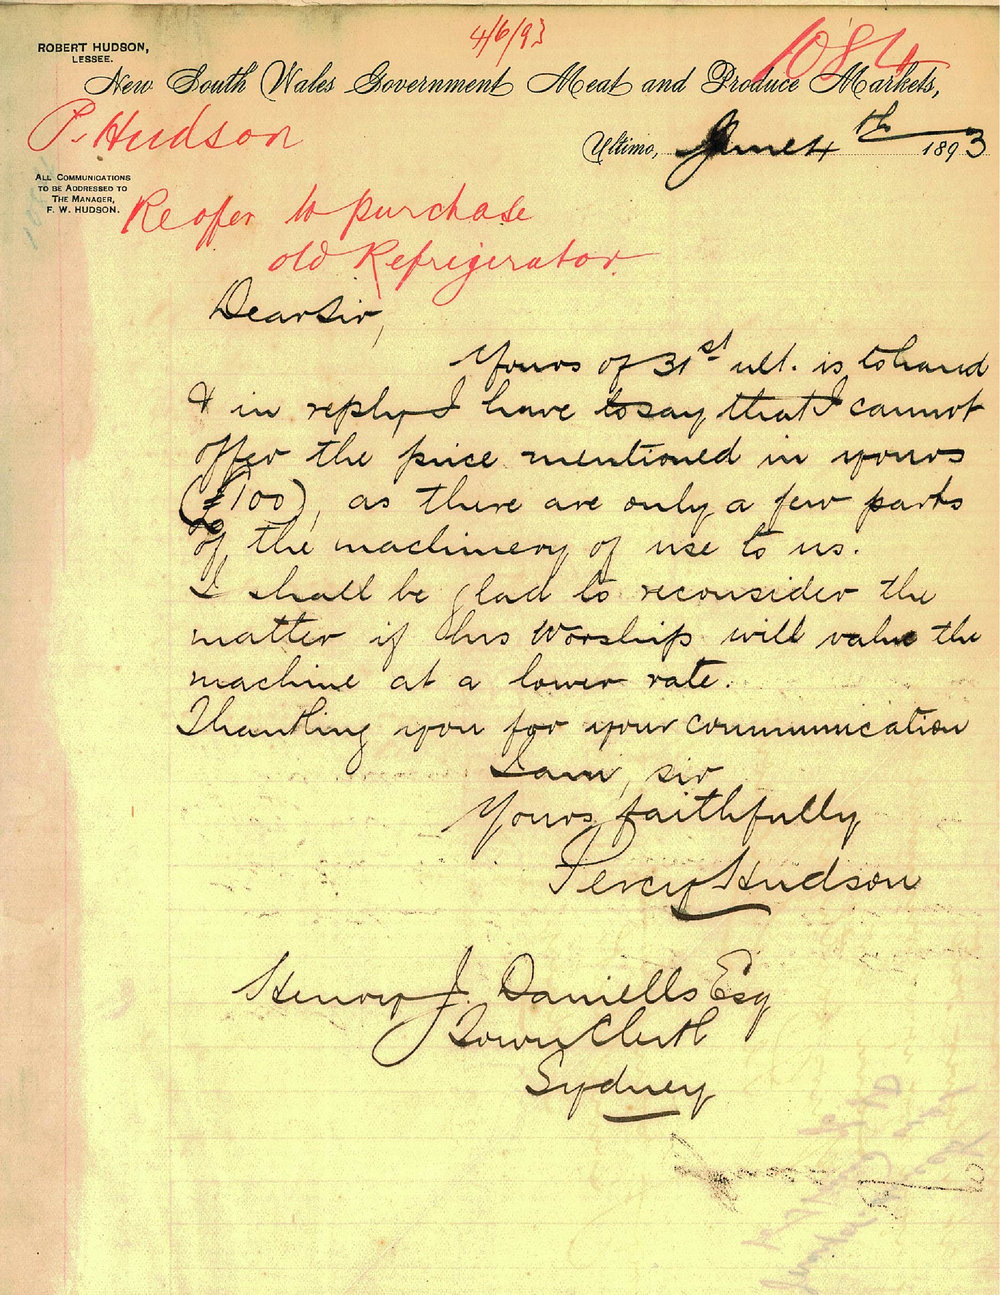 4/6/93
1084
ROBERT HUDSON,
LESSEE.
New South Wales Government Meat and Produce Markets,
P. Hudson
Ultimo, June 4th 1893
ALL COMMUNICATIONS
TO BE ADDRESSED TO
THE MANAGER,
F. W. HUDSON.
Re offer to purchase
old Refrigerator.
Dear Sir,
Yours of 31st ult. is to hand
& in reply I have to say that I cannot
offer the price mentioned in yours
(£100), as there are only a few parts
of the machinery of use to us.
I shall be glad to reconsider the
matter if his Worship will value the
machine at a lower rate.
Thanking you for your communication
I am, sir
Yours faithfully
Percy Hudson
Henry J. Daniells Esq
Town Clerk
Sydney